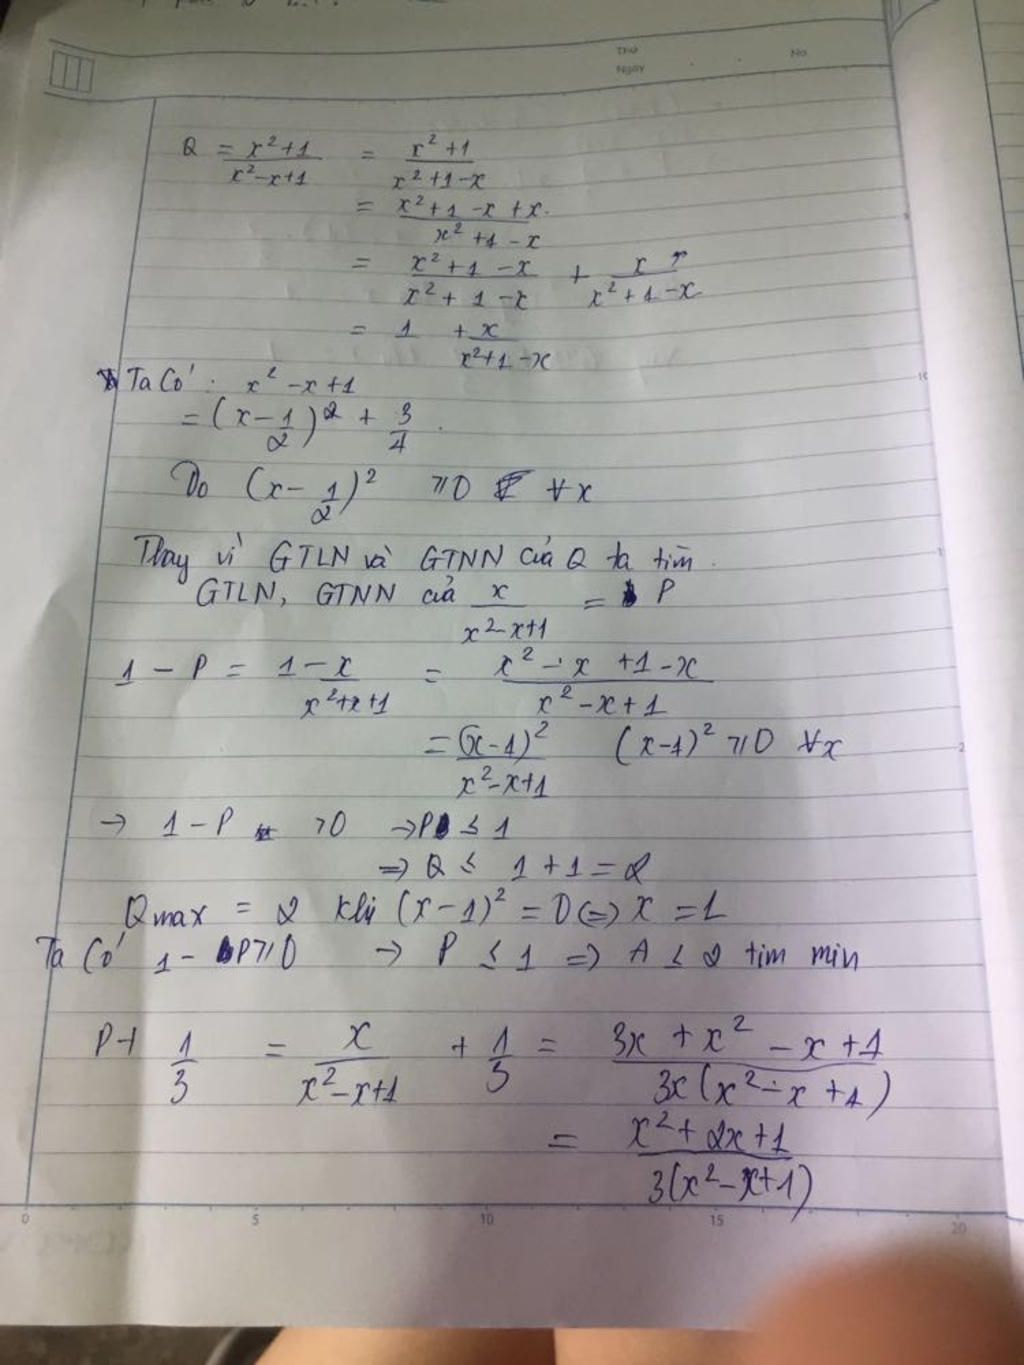 Thứ
Ngày
No
Q = x²+1 / x²-x+1 = x²+1 / x²+1-x
= x²+1-x+x / x²+1-x
= x²+1-x / x²+1-x + x / x²+1-x
= 1 + x / x²+1-x
Ta Có : x²-x+1
= (x-1/2)² + 3/4
Do (x-1/2)² ≥0 ∀x
Thay vì GTLN và GTNN của Q ta tìm
GTLN, GTNN của x / x²-x+1 = P
1 - P = 1-x / x²+x+1 = x²-x+1-x / x²-x+1
= (x-1)² / x²-x+1 (x-1)² ≥0 ∀x
→ 1-P ≥0 →P ≤ 1
⇒ Q ≤ 1+1=2
Qmax = 2 khi (x-1)² = 0 (=) x = 1
Ta Có 1-P≥0 → P ≤ 1 ⇒ A ≤ 2 tìm min
P+ 1/3 = x / x²-x+1 + 1/3 = 3x+x²-x+1 / 3x(x²-x+1)
= x²+2x+1 / 3(x²-x+1)
0 5 10 15 20